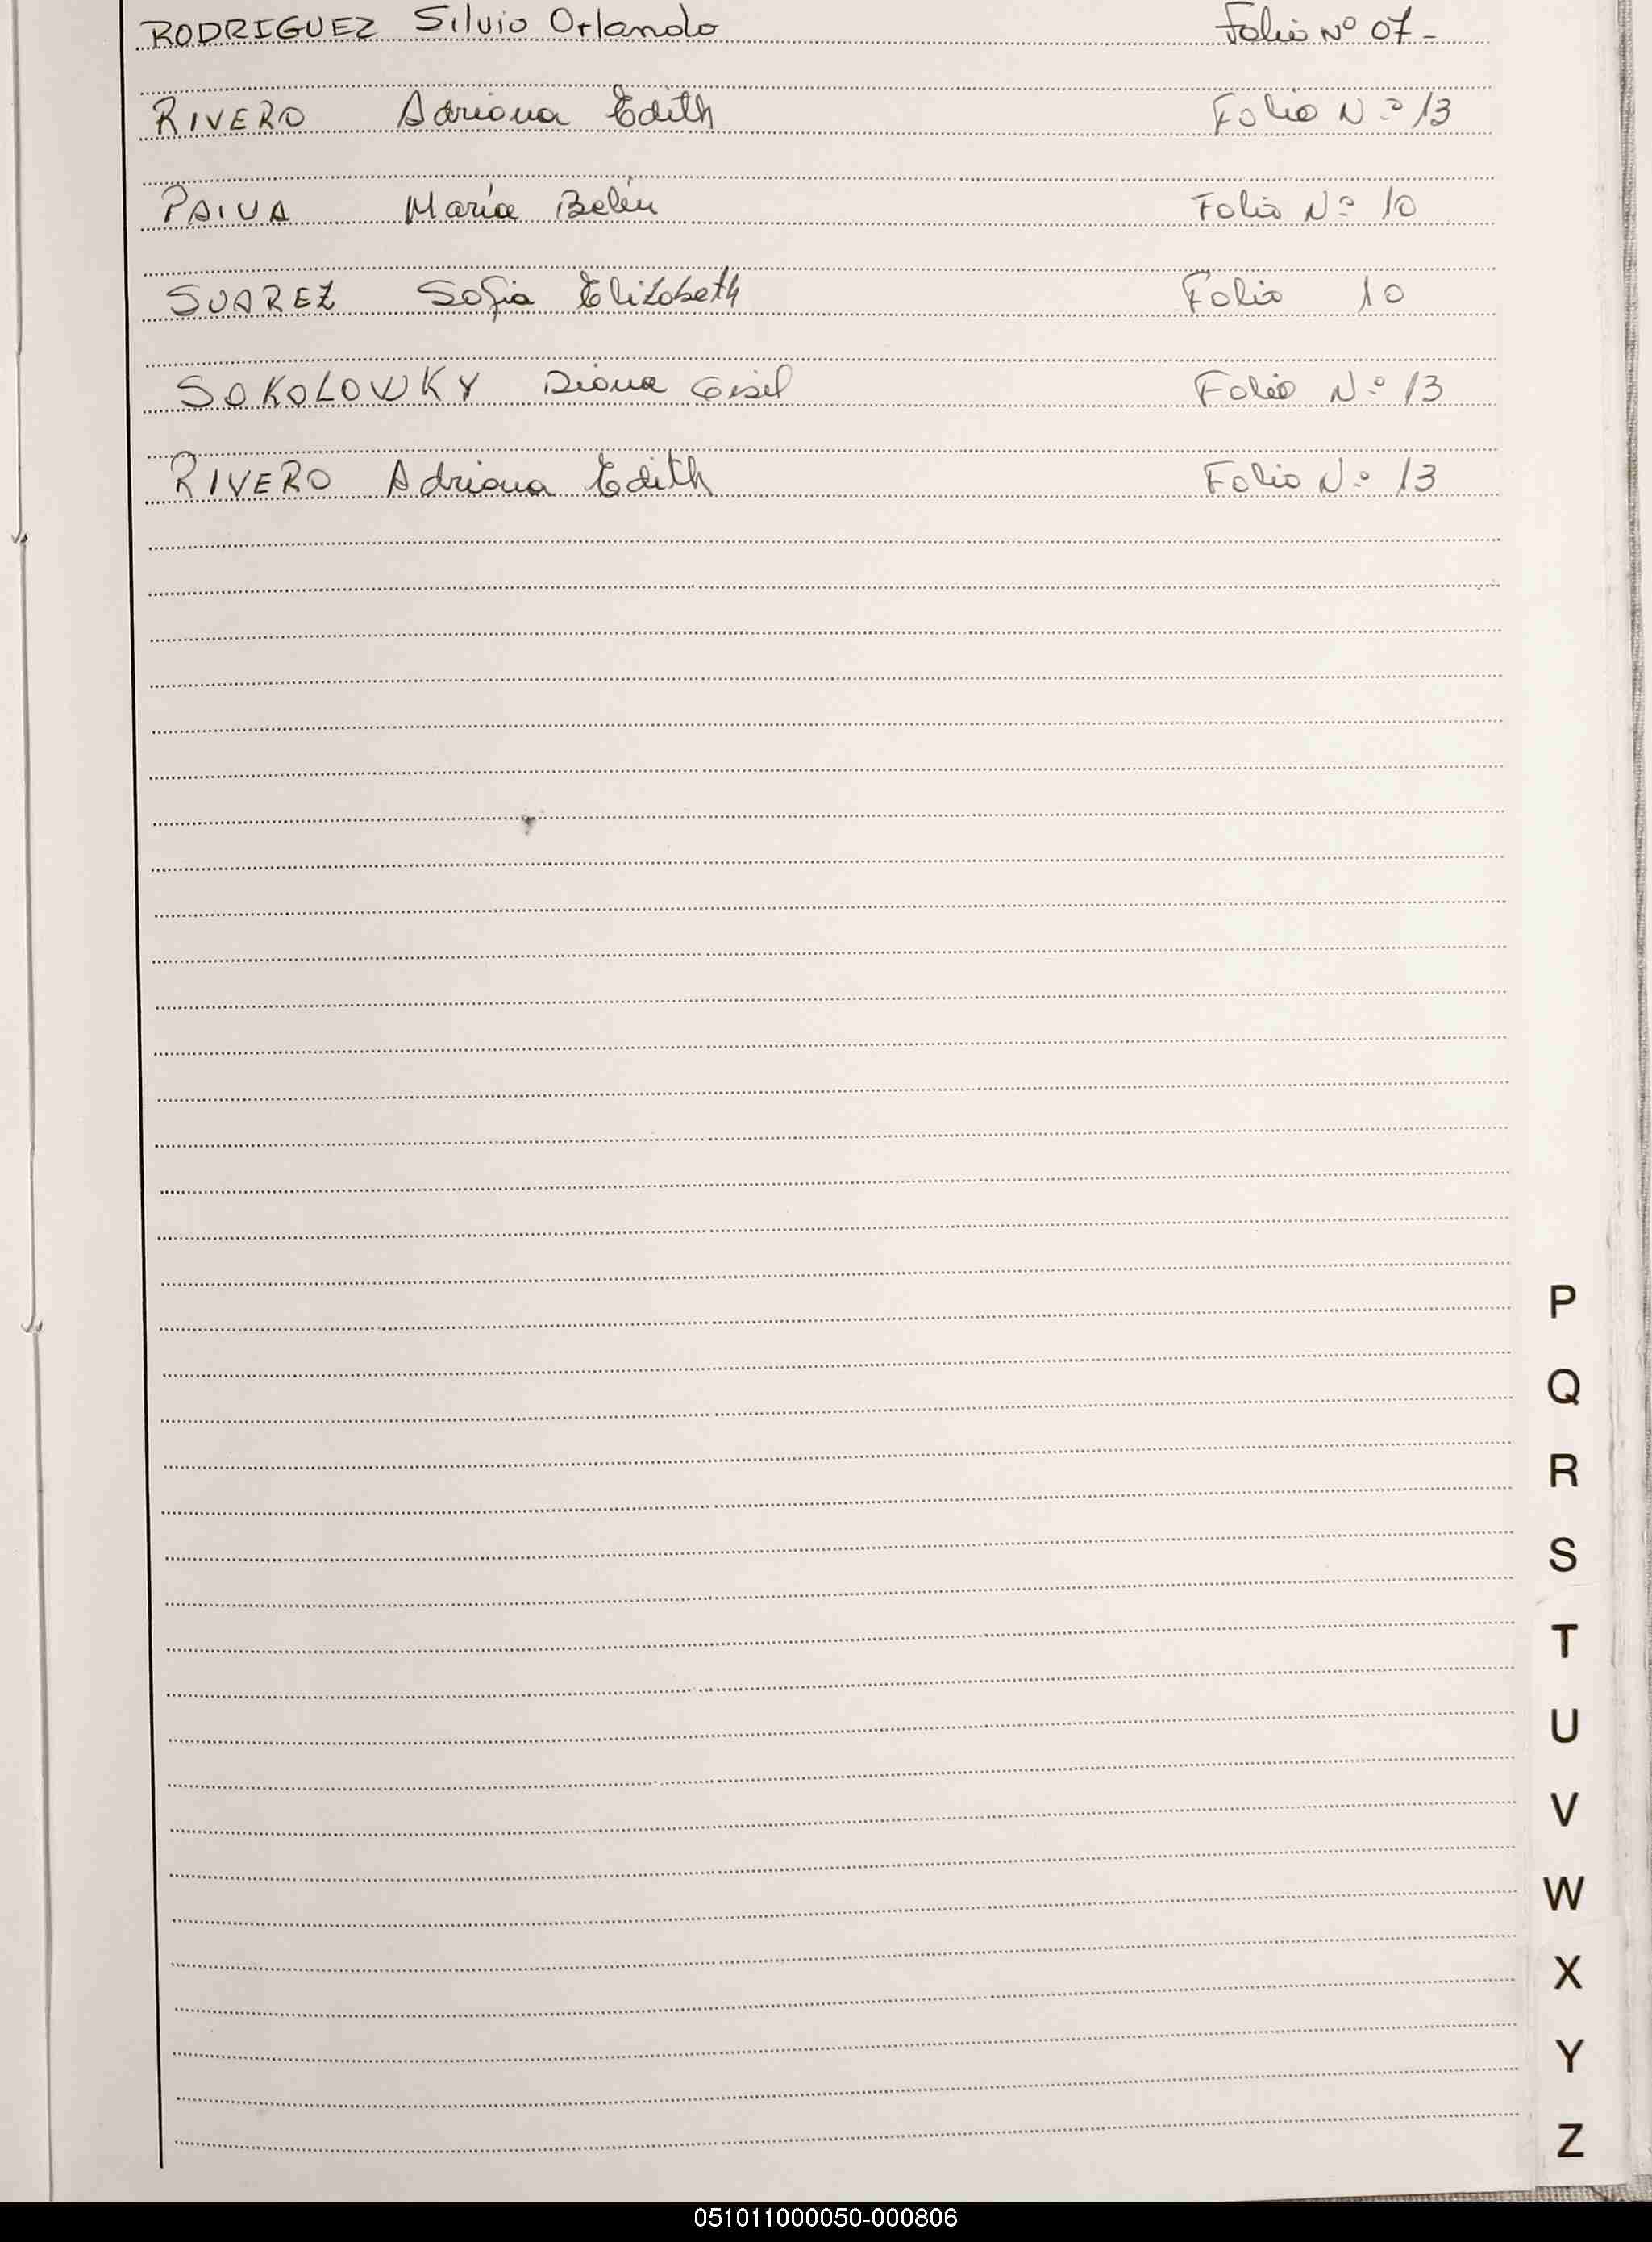 RODRIGUEZ Silvio Orlando Folio Nº 07-
RIVERO Adriana Edith Folio N.º 13
PAIVA María Belén Folio Nº 10
SUAREZ Sofia Elizabeth Folio 10
SOKOLOWKY Diana Gisel Folio N.º 13
RIVERO Adriana Edith Folio N.º 13
P
Q
R
S
T
U
V
W
X
Y
Z
051011000050-000806